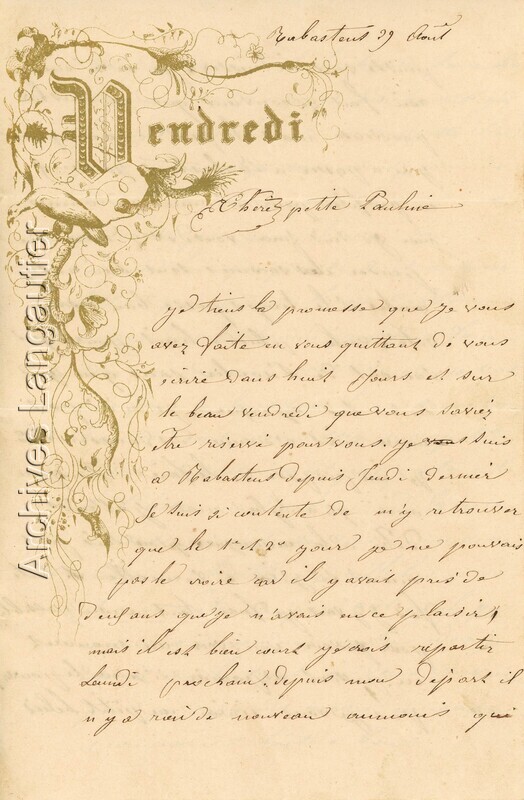 Rabastens 29 Août
Vendredi
Chère petite Pauline
je tiens la promesse que je vous
avez faite en vous quittant de vous
écrire dans huit jours et sur
le beau vendredi que vous saviez
être reservé pour vous. je vous suis
a Rabastens depuis Jeudi dernier
Je suis si contente de m'y retrouver
que le 1er et 2e jour je ne pouvais
pas le croire car il y avait près de
deux ans que je n'avais eu ce plaisir,
mais il est bien court je crois repartir
Lundi prochain. depuis mon depart il
n'y a rien de nouveau aumoins qui
Archives Langautier